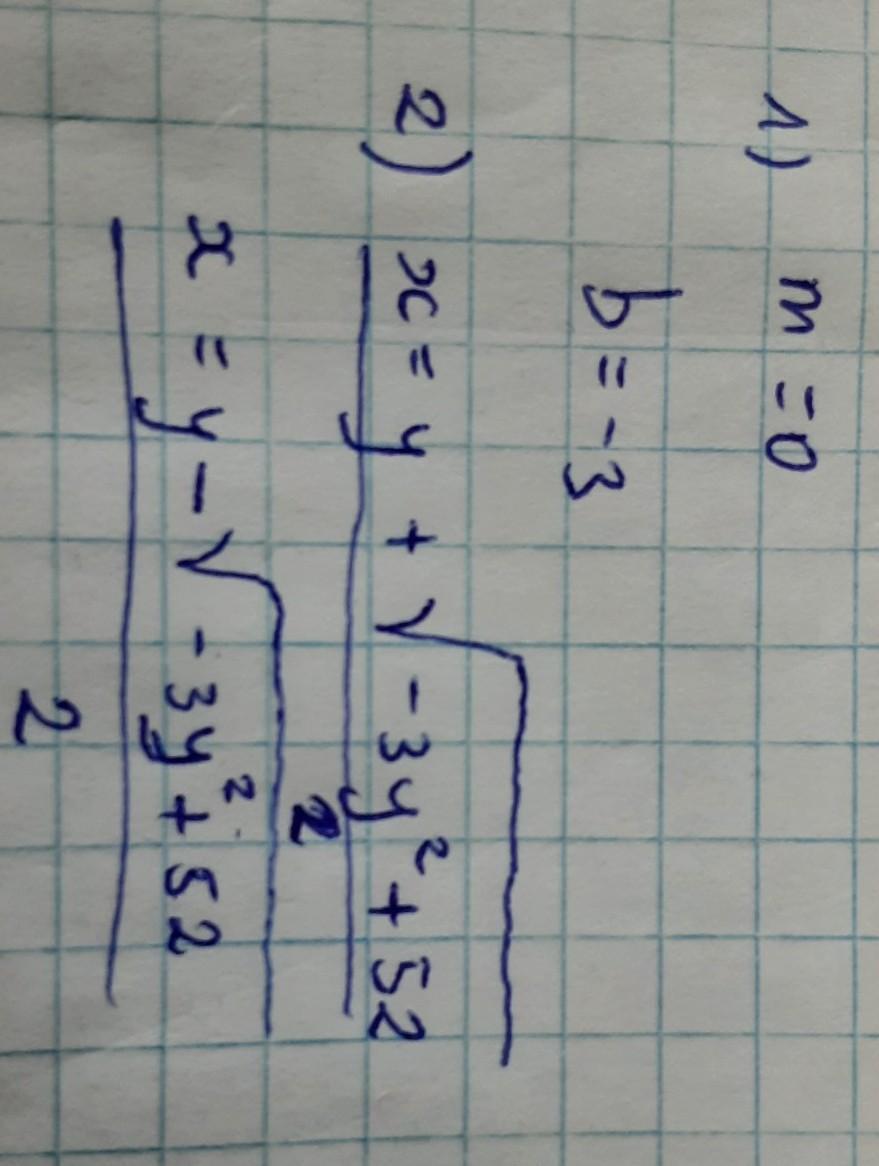 1) m = 0
b = -3
2) x = y + √-3y² + 52
2
x = y - √-3y² + 52
2